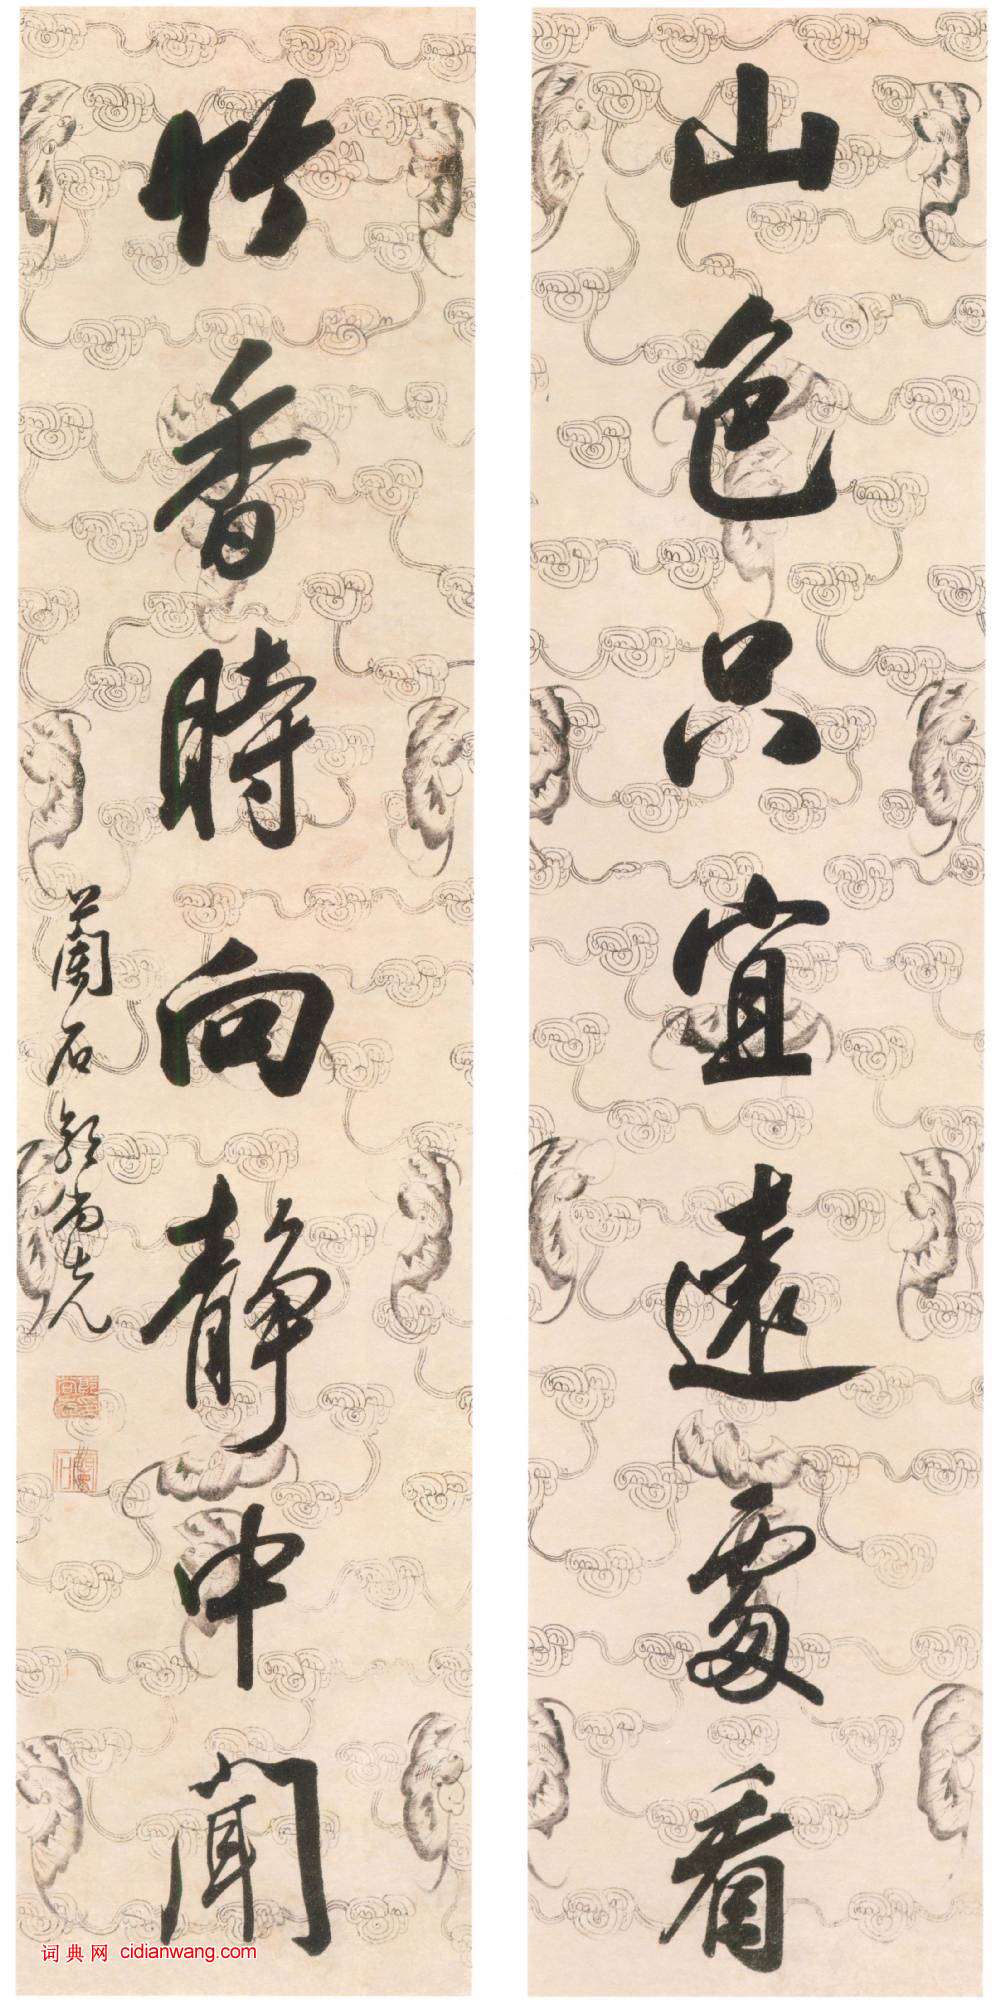 山色只宜遠處看
竹香時向靜中聞
蘭石郭尚先
词典网 cidianwang.com